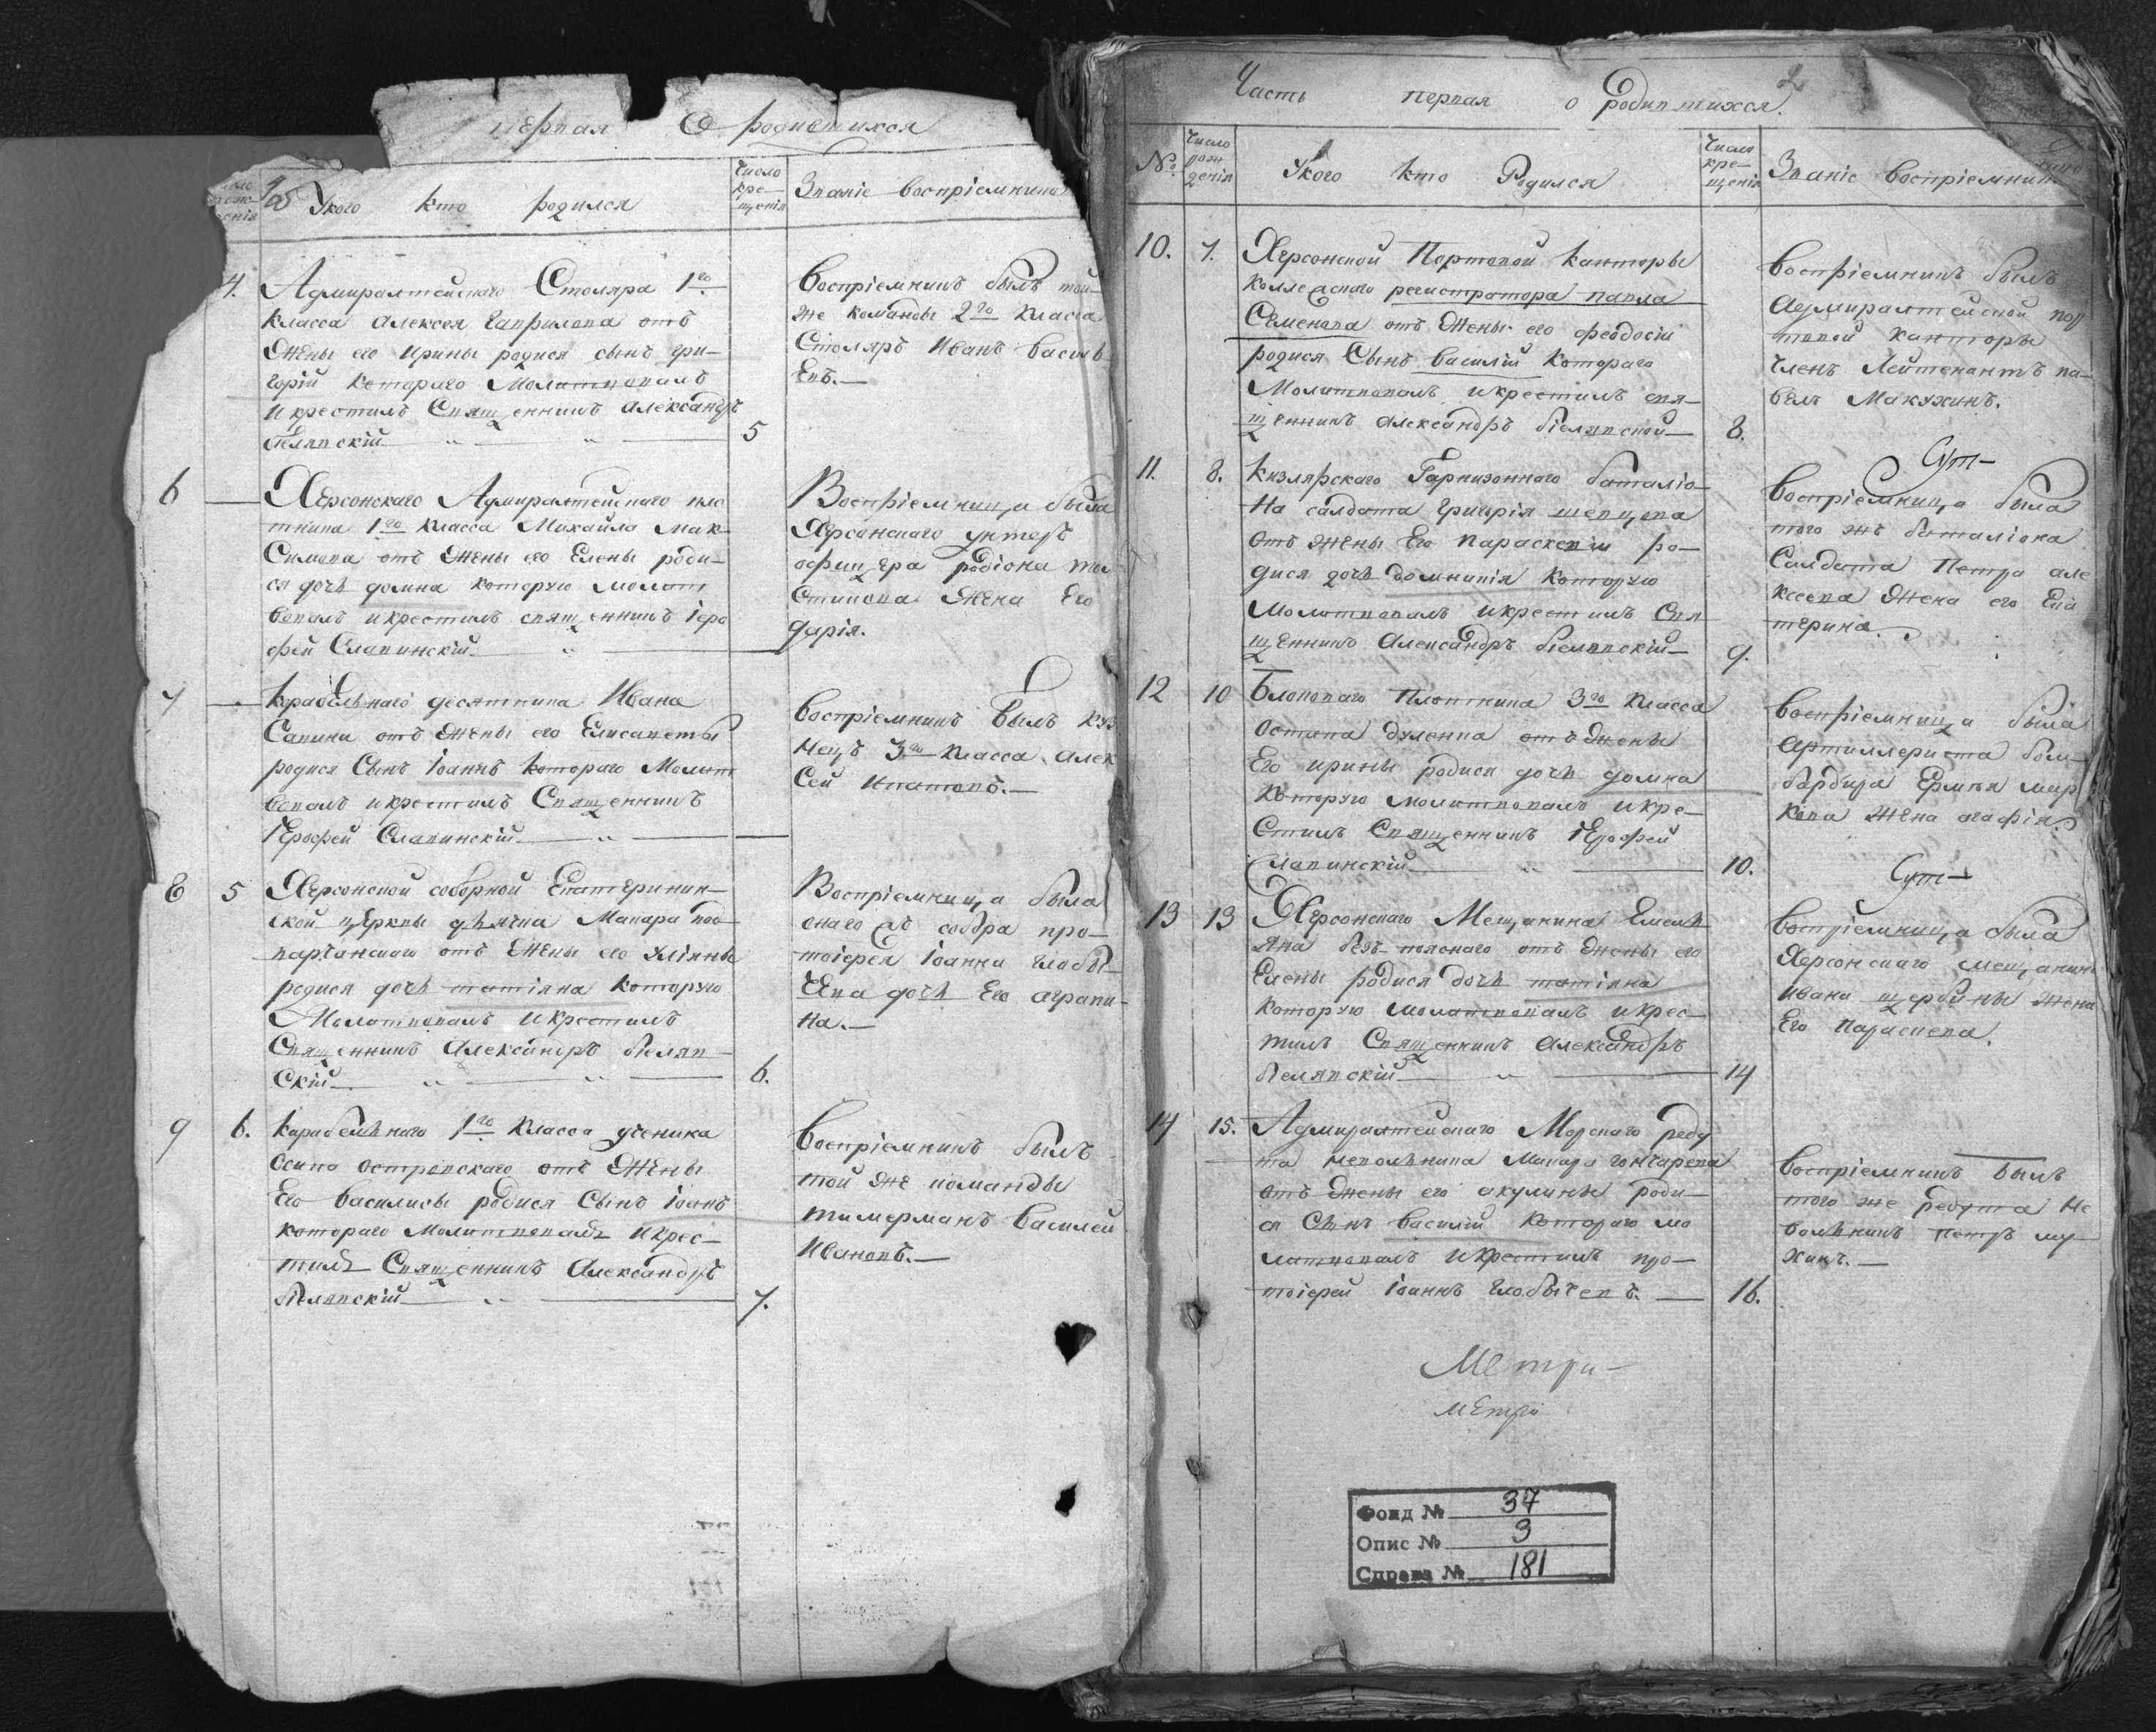 первая О родившихся
Число рож-
денія
У кого кто родился
Число
кре-
щенія
Званіе воспріемника
4. Адмиралтейскаго Столяра 1го
класса Алексея Гаврилова отъ
Жены его Ирины родися сынъ гри-
горій котораго Молитвовалъ
и крестилъ Священникъ Александръ
Белявскій 5
Воспріемникъ былъ той
же команды 2го класса
Столяръ Иванъ Василь
Евъ.
6 Херсонскаго Адмиралтейскаго пло
тника 1го класса Михайла Мак-
Симова отъ Жены его Елены роди-
ся дочь домна которую молит
вовалъ и крестилъ священникъ Іеро
фей Славинскій
Воспріемница была
Херсонскаго унтеръ
офицера родіона
Жена Его
дарія.
7 Корабельнаго десятника Ивана
Савина отъ Жены его Елисаветы
родися Сынъ Іоаннъ котораго Молит
вовалъ и крестилъ Священникъ
Іерофей Славинскій
Воспріемникъ былъ куз
нецъ 3го класса Алек
Сей Игнатовъ.
8 5 Херсонской соборной Екатеринин-
ской церквы дьячка Макара под
отъ Жены его уліяны
родися дочь татіяна которую
Молитвовалъ и крестилъ
Священникъ Александръ Беляв-
Скій 6.
Воспріемница была
онаго жъ собора про-
тоіерея Іоанна глобы-
чева дочь Его аграпи-
на.
9 6. Карабельнаго 1го класса ученика
Осипа островскаго отъ Жены
Его Василисы родися Сынъ Іоанъ
котораго Молитвовалъ и крес-
тилъ Священникъ Александръ
Белявскій 7.
Воспріемникъ былъ
той же команды
тимерманъ Василей
Ивановъ.
Часть первая о родившихся. 2
№
Число
рож
денія
У кого кто Родился
Число
кре-
щенія
Званіе воспріемник
10. 7. Херсонской Портовой канторы
коллежскаго регистратора павла
Семенова отъ Жены его феодосіи
родися Сынъ василій котораго
Молитвовалъ и крестилъ свя-
щенникъ Александръ Белявской 8.
Воспріемникъ былъ
Адмиралтейской пор
товой канторы
членъ Лейтенантъ па-
велъ Макухинъ.
11. 8. Кизлярскаго Гарнизоннаго баталіо-
на салдата григорія шевцова
отъ жены Его параскевіи ро-
дися дочь домникія которую
Молитвовалъ и крестилъ Свя
щенникъ Александръ Белявскій 9.
Воспріемница была
того жъ баталіона
Салдата Петра але
ксеева Жена его Ека
терина.
12 10 Блоковаго Плотника 3го класса
Остапа дуленка отъ Жены
Его ирины родися дочь домна
которую молитвовалъ и кре-
Стилъ Священникъ Іерофей
Славинскій 10.
Воспріемница была
Артиллериста бом-
бардира Ермила мир
кова Жена агафія.
13 13 Херсонскаго Мещанина Емель
яна безъ-пояснаго отъ Жены его
Елены родися дочь татіяна
которую молитвовалъ и крес-
тилъ Священникъ Александръ
Белявскій 14
Воспріемница была
Херсонскаго мещанина
Ивана щербины жена
Его параскева.
14 15. Адмиралтейскаго Морскаго реду
та невольника Макара гончарева
отъ Жены его акулины роди-
ся Сынъ василій котораго мо
литвовалъ и крестилъ про-
тоіерей Іоаннъ глобычевъ. 16.
Воспріемникъ былъ
того же редута не
вольникъ петръ му-
хинъ.
Метри-
метри
Фонд № 37
Опис № 3
Справа № 181